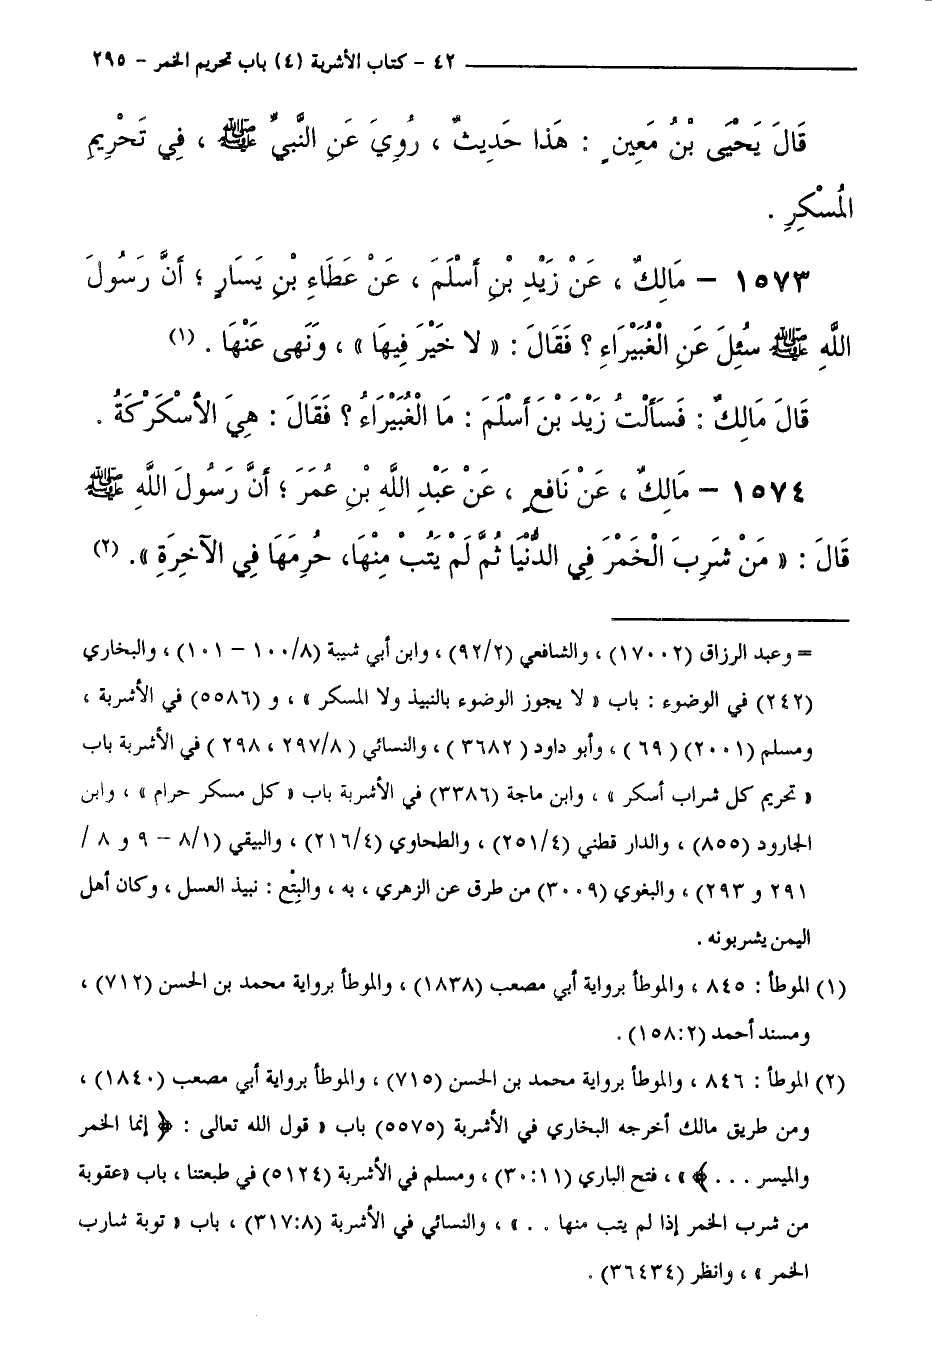 ٤٢ - كتاب الأشربة (٤) باب تحريم الخمر - ٢٩٥
قَالَ يَحْيَى بْنُ مَعِينٍ : هَذا حَدِيثٌ ، رُوِيَ عَنِ النَّبيِّ ﷺ ، فِي تَحْرِيمِ
المُسْكِرِ .
١٥٧٣ - مَالِكٌ ، عَنْ زَيْدِ بْنِ أَسْلَمَ ، عَنْ عَطَاءِ بْنِ يَسَارٍ ؛ أَنَّ رَسُولَ
اللَّهِ ﷺ سُئِلَ عَنِ الْغُبَيْرَاءِ ؟ فَقَالَ : « لا خَيْرَ فِيهَا » ، وَنَهى عَنْهَا . (١)
قَالَ مَالِكٌ : فَسَأَلْتُ زَيْدَ بْنَ أَسْلَمَ : مَا الْغُبَيْرَاءُ ؟ فَقَالَ : هِيَ الأَسْكَرْكَةُ .
١٥٧٤ - مَالِكٌ ، عَنْ نَافِعٍ ، عَنْ عَبْدِ اللَّهِ بْنِ عُمَرَ ؛ أَنَّ رَسُولَ اللَّهِ ﷺ
قَالَ : « مَنْ شَرِبَ الْخَمْرَ فِي الدُّنْيَا ثُمَّ لَمْ يَتُبْ مِنْهَا، حُرِمَهَا فِي الآخِرَةِ ». (٢)
= وعبد الرزاق (١٧٠٠٢) ، والشافعي (٩٢/٢) ، وابن أبي شيبة (١٠٠/٨ - ١٠١) ، والبخاري
(٢٤٢) في الوضوء : باب « لا يجوز الوضوء بالنبيذ ولا المسكر » ، و (٥٥٨٦) في الأشربة ،
ومسلم (٢٠٠١) (٦٩) ، وأبو داود (٣٦٨٢) ، والنسائي (٢٩٧/٨ ، ٢٩٨) في الأشربة باب
« تحريم كل شراب أسكر » ، وابن ماجة (٣٣٨٦) في الأشربة باب « كل مسكر حرام » ، وابن
الجارود (٨٥٥) ، والدار قطني (٢٥١/٤) ، والطحاوي (٢١٦/٤) ، والبيقي (٨/١ - ٩ و ٨ /
٢٩١ و ٢٩٣) ، والبغوي (٣٠٠٩) من طرق عن الزهري ، به ، والبِتْع : نبيذ العسل ، وكان أهل
اليمن يشربونه .
(١) الموطأ : ٨٤٥ ، والموطأ برواية أبي مصعب (١٨٣٨) ، والموطأ برواية محمد بن الحسن (٧١٢) ،
ومسند أحمد (١٥٨:٢) .
(٢) الموطأ : ٨٤٦ ، والموطأ برواية محمد بن الحسن (٧١٥) ، والموطأ برواية أبي مصعب (١٨٤٠) ،
ومن طريق مالك أخرجه البخاري في الأشربة (٥٥٧٥) باب « قول الله تعالى : ﴿ إنما الخمر
والميسر . . . ﴾ » ، فتح الباري (٣٠:١١) ، ومسلم في الأشربة (٥١٢٤) في طبعتنا ، باب «عقوبة
من شرب الخمر إذا لم يتب منها . . » ، والنسائي في الأشربة (٣١٧:٨) ، باب « توبة شارب
الخمر » ، وانظر (٣٦٤٣٤) .